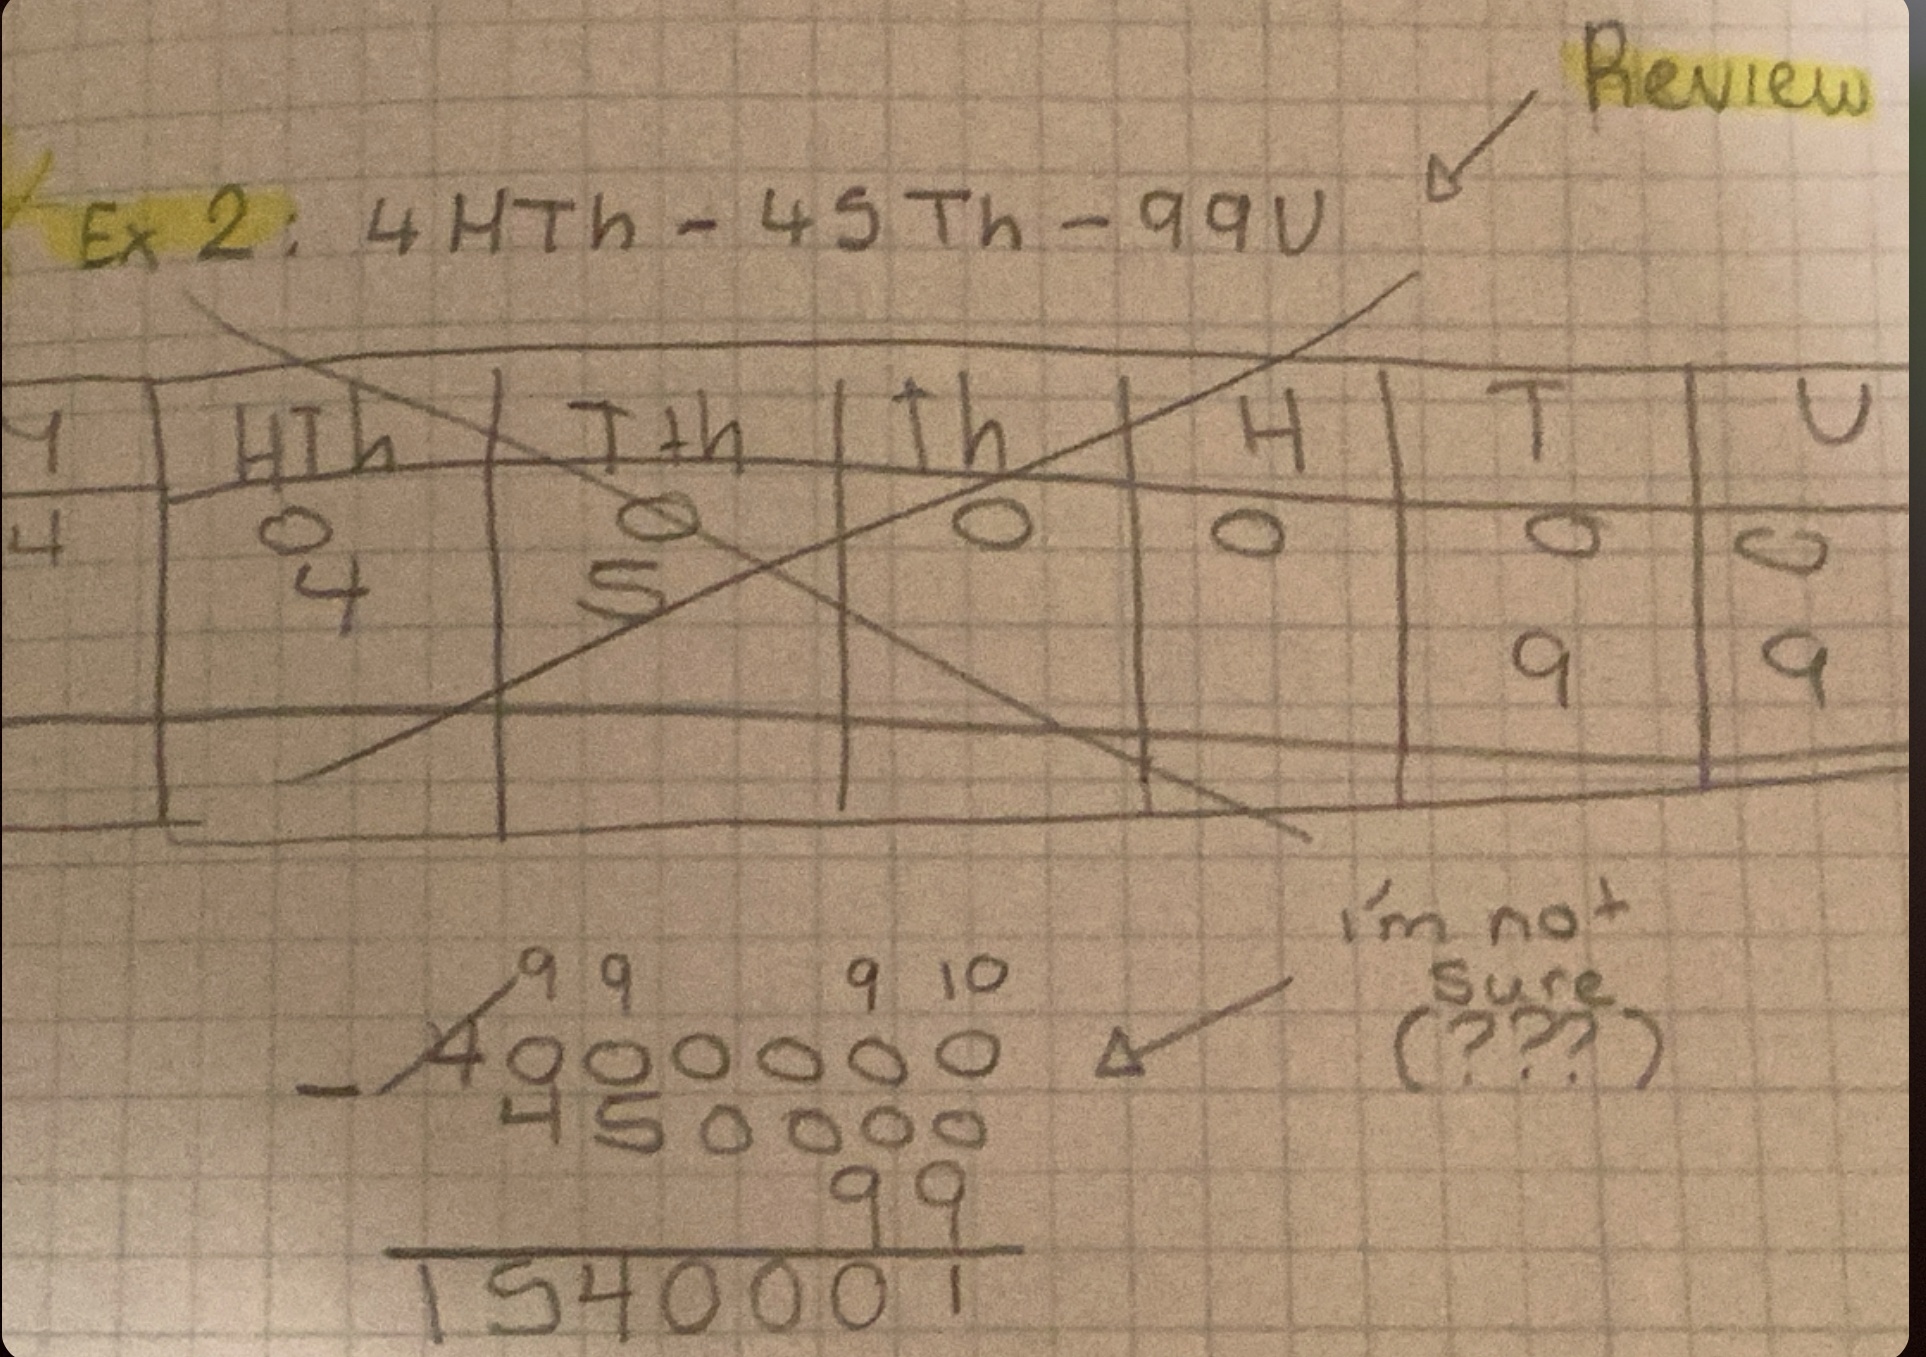 Review
Ex 2: 4HTh - 45Th - 99U
HTh Tth Th H T U
4 0 0 0 0 0 0
4 5
9 9
i'm not
sure
(???)
9 9 9 10
- 4000000
450000
99
1540001